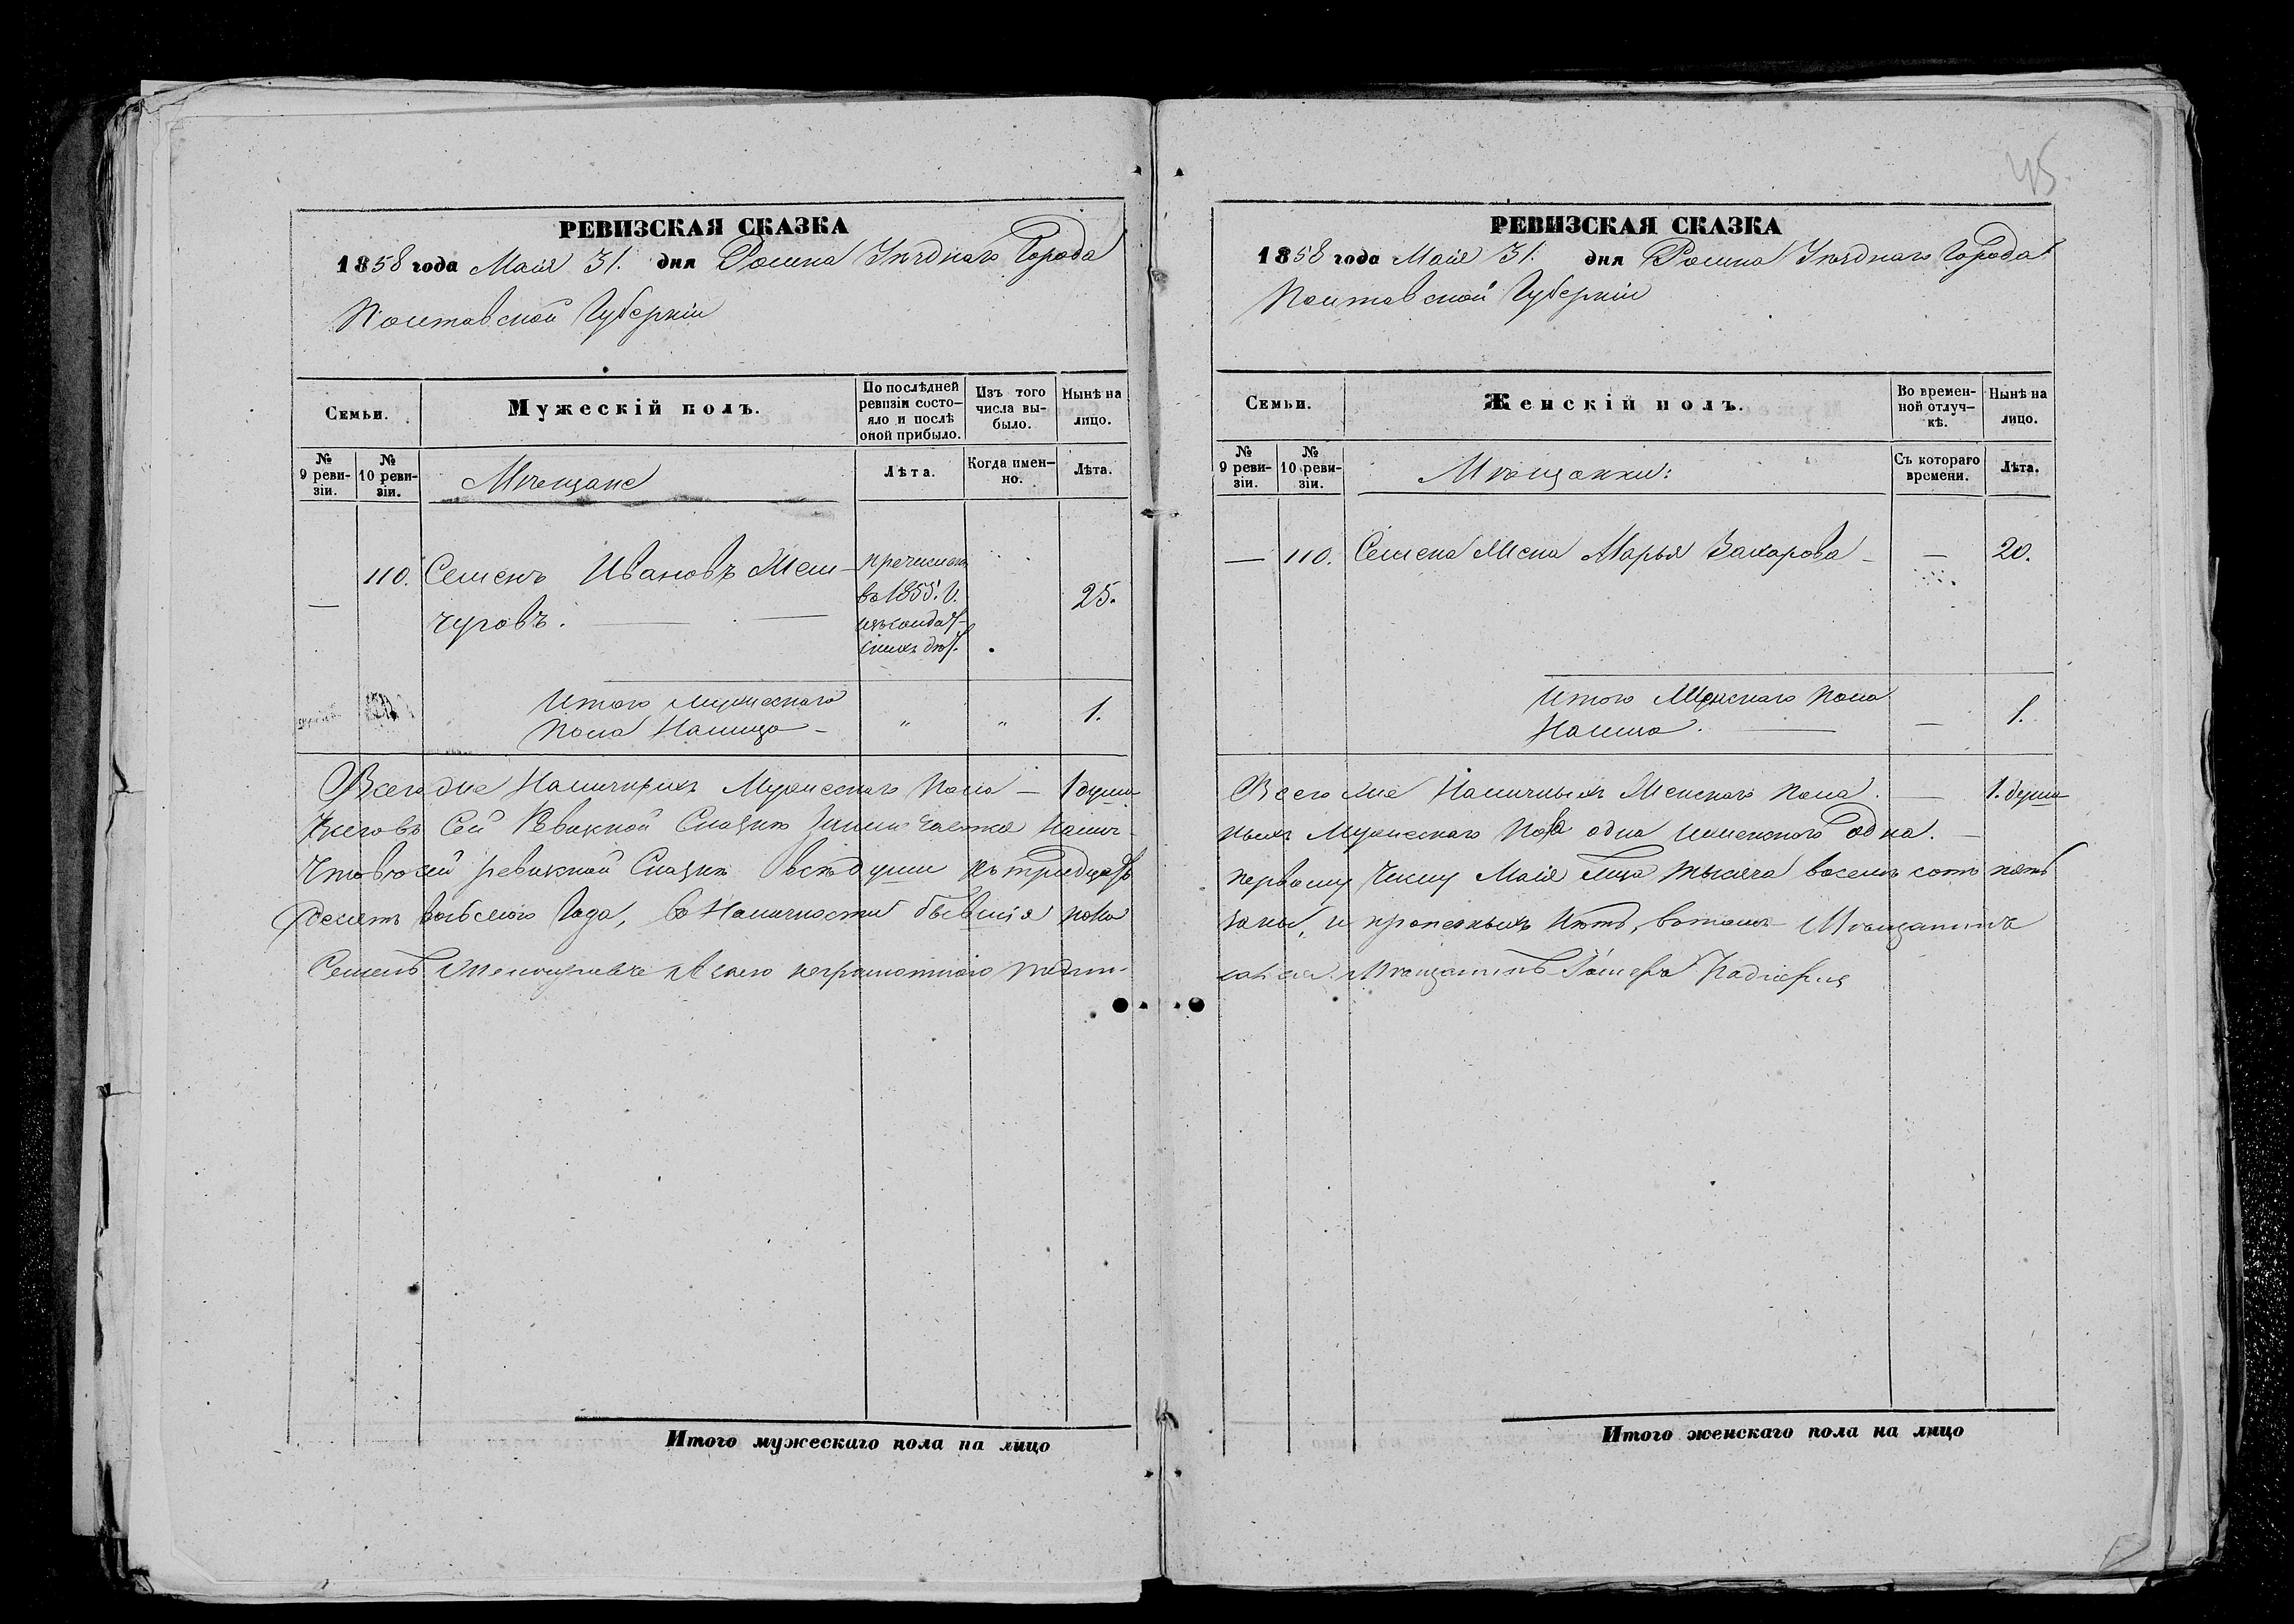 45
РЕВИЗСКАЯ СКАЗКА
1858 года Маія 31. дня Ромна Уѣзднаго Города
Полтавской Губерніи
Семьи.
Мужескій полъ.
По послѣдней ревизіи состо-
яло и послѣ
оной прибыло.
Изъ того
числа вы-
было.
Нынѣ на
лицо.
№
9 реви-
зіи.
№
10 реви-
зіи.
Мѣщане
Лѣта.
Когда имен-
но.
Лѣта.
— 110. Семенъ Ивановъ
чуровъ.
въ 1855. г.
25.
Итого мужескаго
пола налицо —
" " 1.
Всего же наличныхъ мужескаго пола — 1 душа
сей Ревизкой Сказкѣ налич-
Что въ сей ревизкой Сказкѣ всѣ души къ тридцать
десятъ восьмого года, въ наличности бывшія пока
Семенъ неграмотнаго подпи-
Итого мужескаго пола на лицо
РЕВИЗСКАЯ СКАЗКА
1858 года Маія 31. дня Ромна Уѣзднаго Города
Полтавской Губерніи
Семьи.
Женскій полъ.
Во времен-
ной отлуч-
кѣ.
Нынѣ на
лицо.
№
9 реви-
зіи.
№
10 реви-
зіи.
Мѣщанки:
Съ котораго
времени.
Лѣта.
— 110. Семена Жена Марья Захарова — — 20.
Итого Женскаго пола
Налицо. — 1.
Всего же Наличныхъ Женскаго пола. — 1. душа
ныхъ Мужескаго пола одна и женского одна. —
первому числу Маія тысяча восемь сотъ пять
заны, и прописныхъ нѣтъ, въ томъ Мѣщанинъ
сался Мѣщанинъ
Итого женскаго пола на лицо